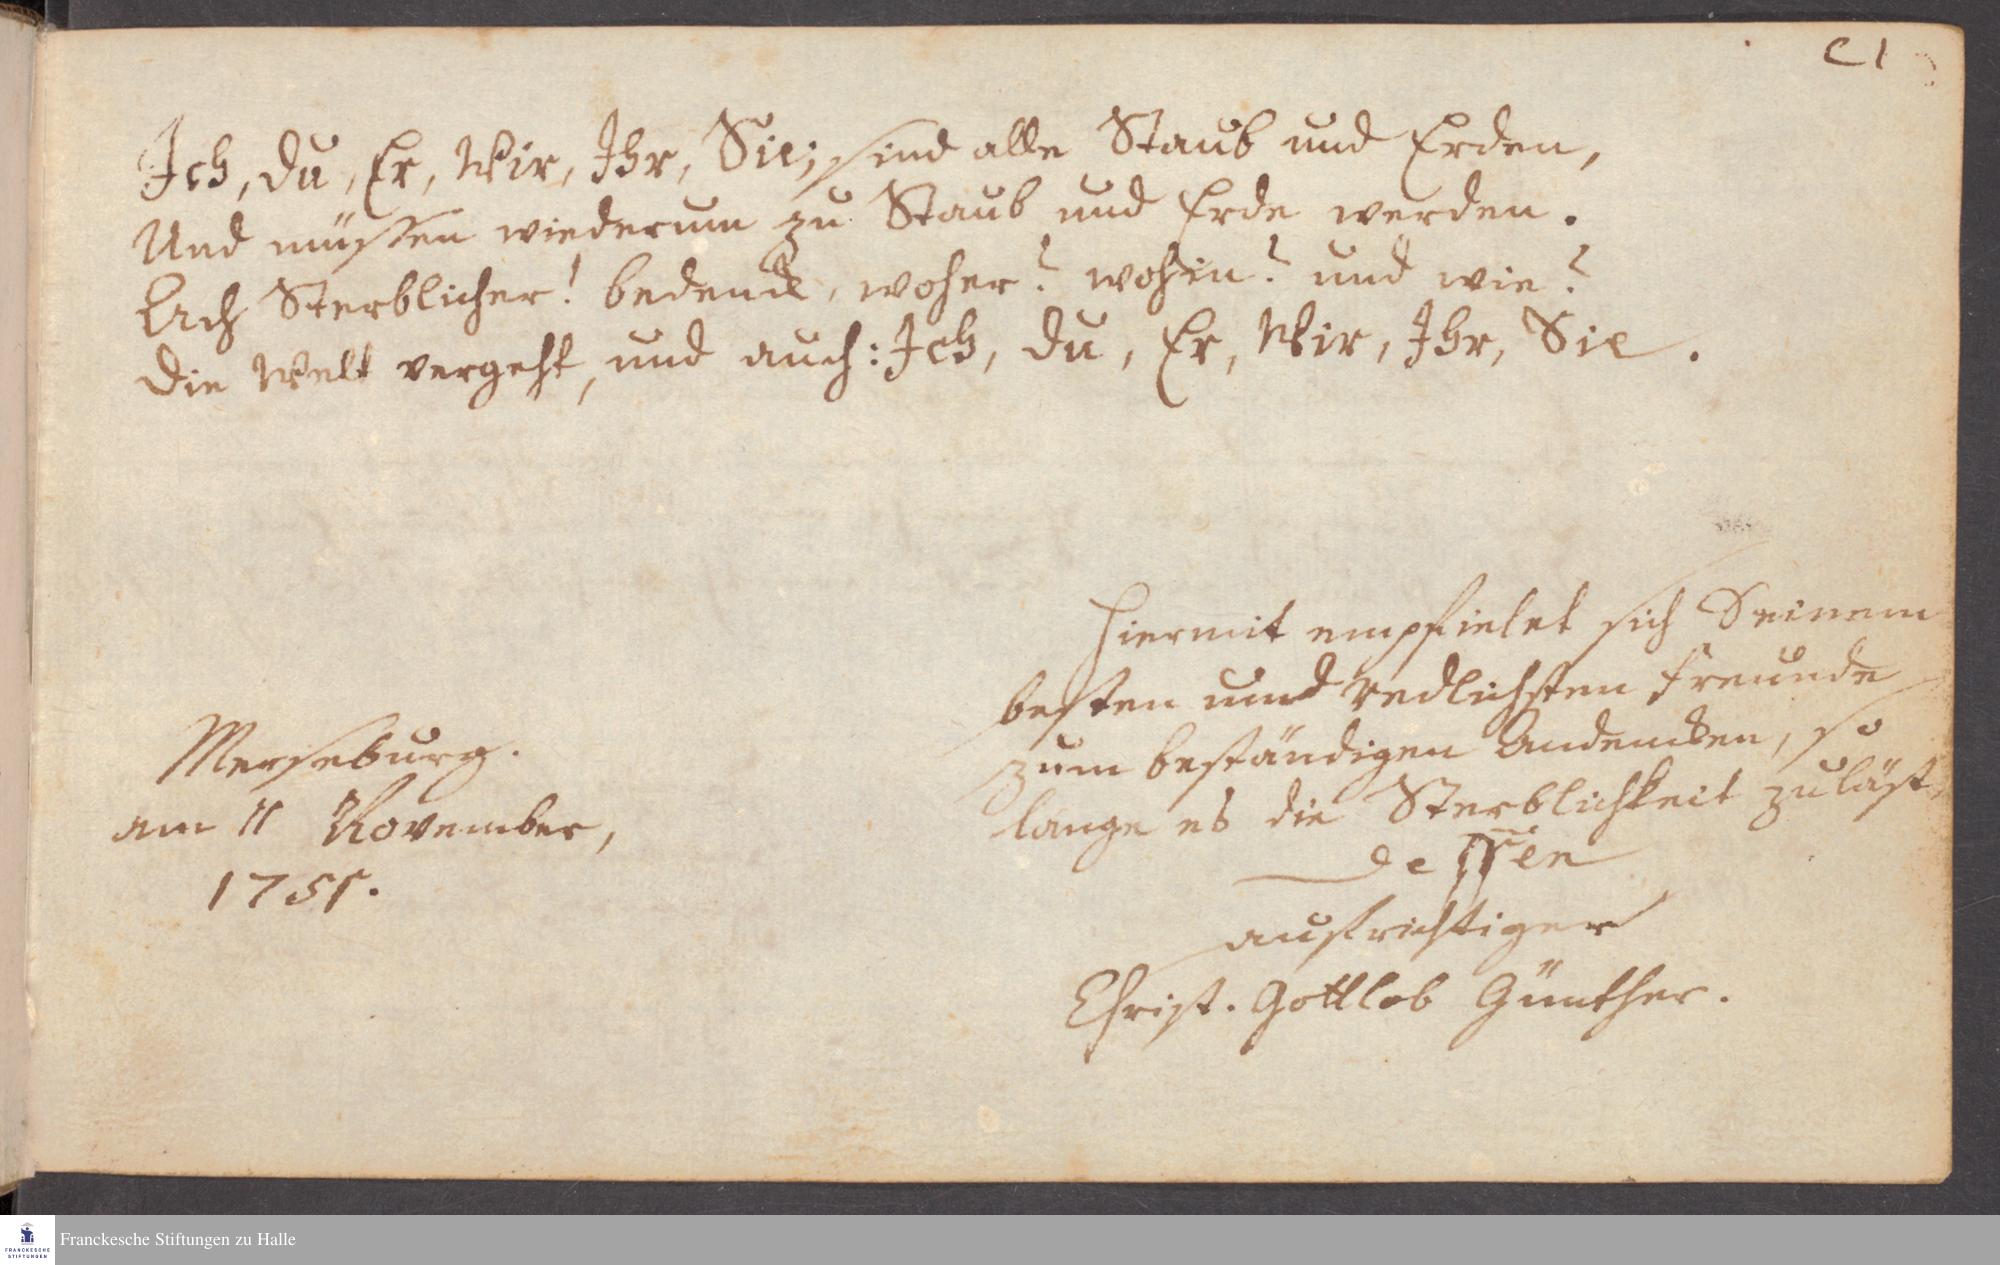 C1
Ich, Du, Er, Wir, Ihr, Sie; sind alle Staub und Erden,
Und müssen wiederum zu Staub und Erde werden.
Ach Sterblicher! bedenck, woher? wohin? und wie?
Die Welt vergeht, und auch: Ich, Du, Er, Wir, Ihr, Sie.
Hiermit empfielet sich Seinem
besten und redlichsten Freunde
zum beständigen Andencken, so
lange es die Sterblichkeit zuläst,
Dessen
aufrichtiger
Christ. Gottlob Günther.
Merseburg.
am 11 November,
1751.
FRANCKESCHE
STIFTUNGEN
Franckesche Stiftungen zu Halle